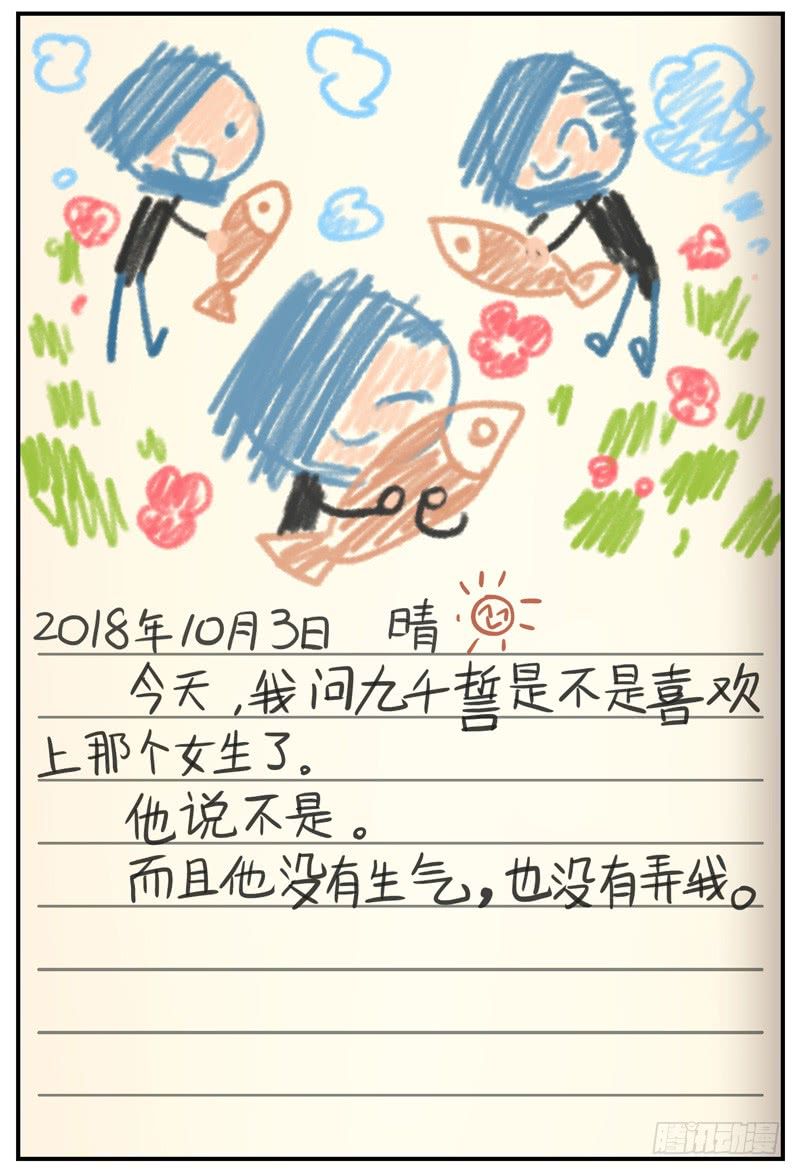 2018年10月3日 晴
今天,我问九千誓是不是喜欢
上那个女生了。
他说不是。
而且他没有生气,也没有弄我。
腾讯动漫